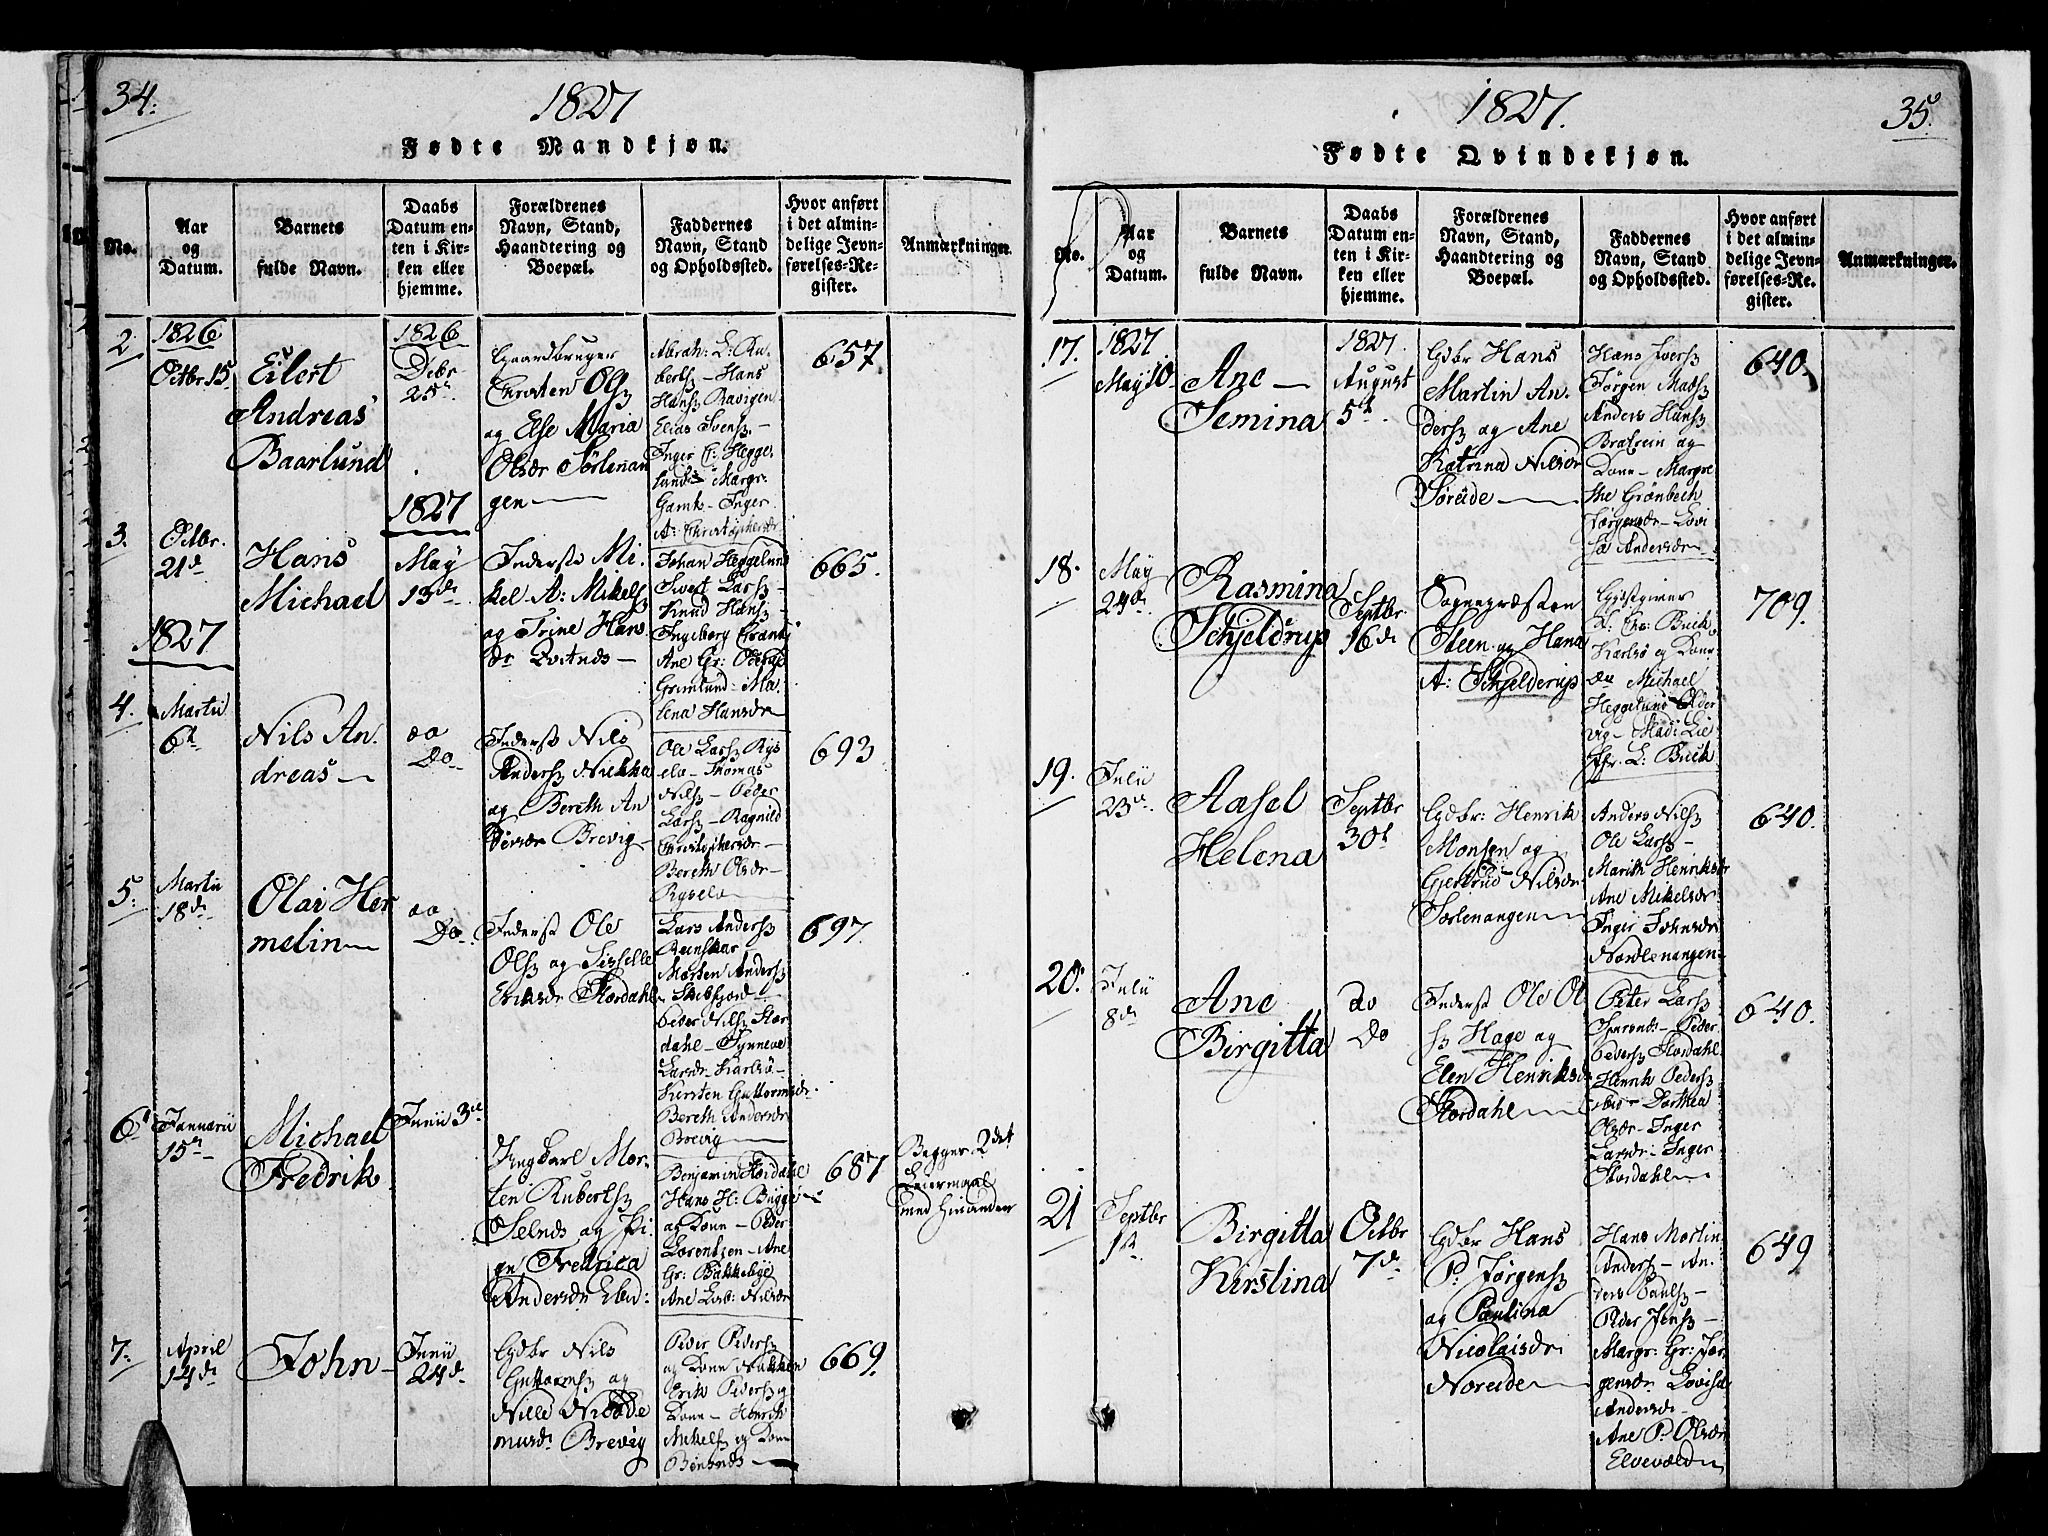 34.
1827
Fødte Mandkjøn.
No.
Aar
og
Datum.
Barnets
fulde Navn.
Daabs
Datum en-
ten i Kir-
ken eller
hjemme.
Forældrenes
Navn, Stand,
Haandtering og
Boepæl.
Faddernes
Navn, Stand
og Opholdssted.
Hvor anført
i det almin-
delige Jevn-
førelses-Re-
gister.
Anmærkninger.
2.
1826
Octbr. 15
Eilert
Andreas
Baarlund
1826
Debr
25de
Gaardbruger
Christen Ols
og Else Maria
Olsdr Sørlenan
gen
Abrah: L: Ru-
berts - Hans
Hans Ravigen
Elias Svens -
Inger C: Hegge
lund - Margr:
Gamt - Inger
A: Christophersdr
657.
3.
Octbr.
21de
Hans
Michael
1827
May
13de
Inderste Mi-
kel A: Mikels
og Trine Hans
dr
Johan Heggelund
Sivert Lars -
Knud Hans -
Ingeborg
Ane Gr:
Grønlund - Ma-
lena Hansdr
665.
1827
4.
Martii
6te
Nils An-
dreas
do
Do
Inderst Nils
Anders
og Bereth An
dersdr Brevig
Ole Lars Rys
elv - Thomas
Nils - Peder
Lars - Ragnild
Christophersdr -
Bereth Olsdr -
Ryselv
693
5.
Martii
18de
Olai Her
melin
do
Do
Inderst Ole
Ols og Sisselle
Eriksdr Stordahl
Lars Anders
Reinskar
Morten Anders
Skibfjord
Peder Nils Stor
dahl - Synneve
Larsdr - Karlsø -
Kirsten Guttormsdr
Bereth Andersdr
Brevig
697.
6.
Januarii
15de
Michael
Fredrik
Junii 3de
Ungkarl Mor-
ten Ruberts
Selnes og Pi-
gen Fredrica
Andersdr
Benjamin Stordahl
Hans H: Bygge
og Kone - Peder
Lorentzen - Ane
Gr: Bakkebye
Ane Lovis: Nilsdr
687
Begges 2det
Leiermaal
med hinanden
7.
April
14de
John
Junii
24de
Gdbr Nils
Guttorms og
Nille
Brevig
Peder Peders
og Kone Nakken
Erik Peders og
Kone - Henrik
Mikels og Kone
669.
1827.
35.
Fødte Qvindekjøn.
No.
Aar
og
Datum.
Barnets
fulde Navn.
Daabs
Datum en-
ten i Kir-
ken eller
hjemme.
Forældrenes
Navn, Stand,
Haandtering og
Boepæl.
Faddernes
Navn, Stand
og Opholdssted.
Hvor anført
i det almin-
delige Jevn-
førelses-Re-
gister.
Anmærkninger.
17.
1827
May 10.
Ane
Semina
1827.
August
5te
Gdbr Hans
Martin An-
ders og Ane
Katrina Nilsdr
Søreide
Hans Ivers
Jørgen Mads
Anders Hans
Bratrein og
Kone - Margre
the Grønbech
Jørgensdr - Lovi
sa Andersdr
640.
18.
May
24de
Rasmina
Schjeldrup
Septbr
16de
Sognepræsten
Steen og Hana
A: Schjelderup
Gjestgiver
Buck
Karlsø og Kone
Do Michael
Heggelund Older
vig - Mad: Lie
L: Buck
709.
19.
Julii
23de
Aasel
Helena
Septbr
30te
Gdbr: Henrik
Monsen og
Gjertrud Nilsdr
Sørlenangen
Anders Nils
Ole Lars -
Marith Henriksdr
Ane Mikelsdr
Inger Johnsdr
Nordlenangen
640.
20.
Julii
8de
Ane
Birgitta
do
Do
Inderst Ole Ol
s Hage og
Elen Henriksdr
Stordahl
Peter Lars
Peder
Peders Stordahl
Henrik Peders
ibid - Dorthea
Olsdr - Inger
Larsdr - Inger
Stordahl
640.
21
Septbr
1te
Birgitta
Kirstina
Octbr
7de
Gdbr Hans
P: Jørgens
og Paulina
Nicolaisdr
Noreide
Hans Martin
Anders - An-
ders Pauls -
Peder Jens -
Margr: Gr: Jør
gensdr Lovisa
Andersdr -
Ane P: Olsdr
Elvevold
649